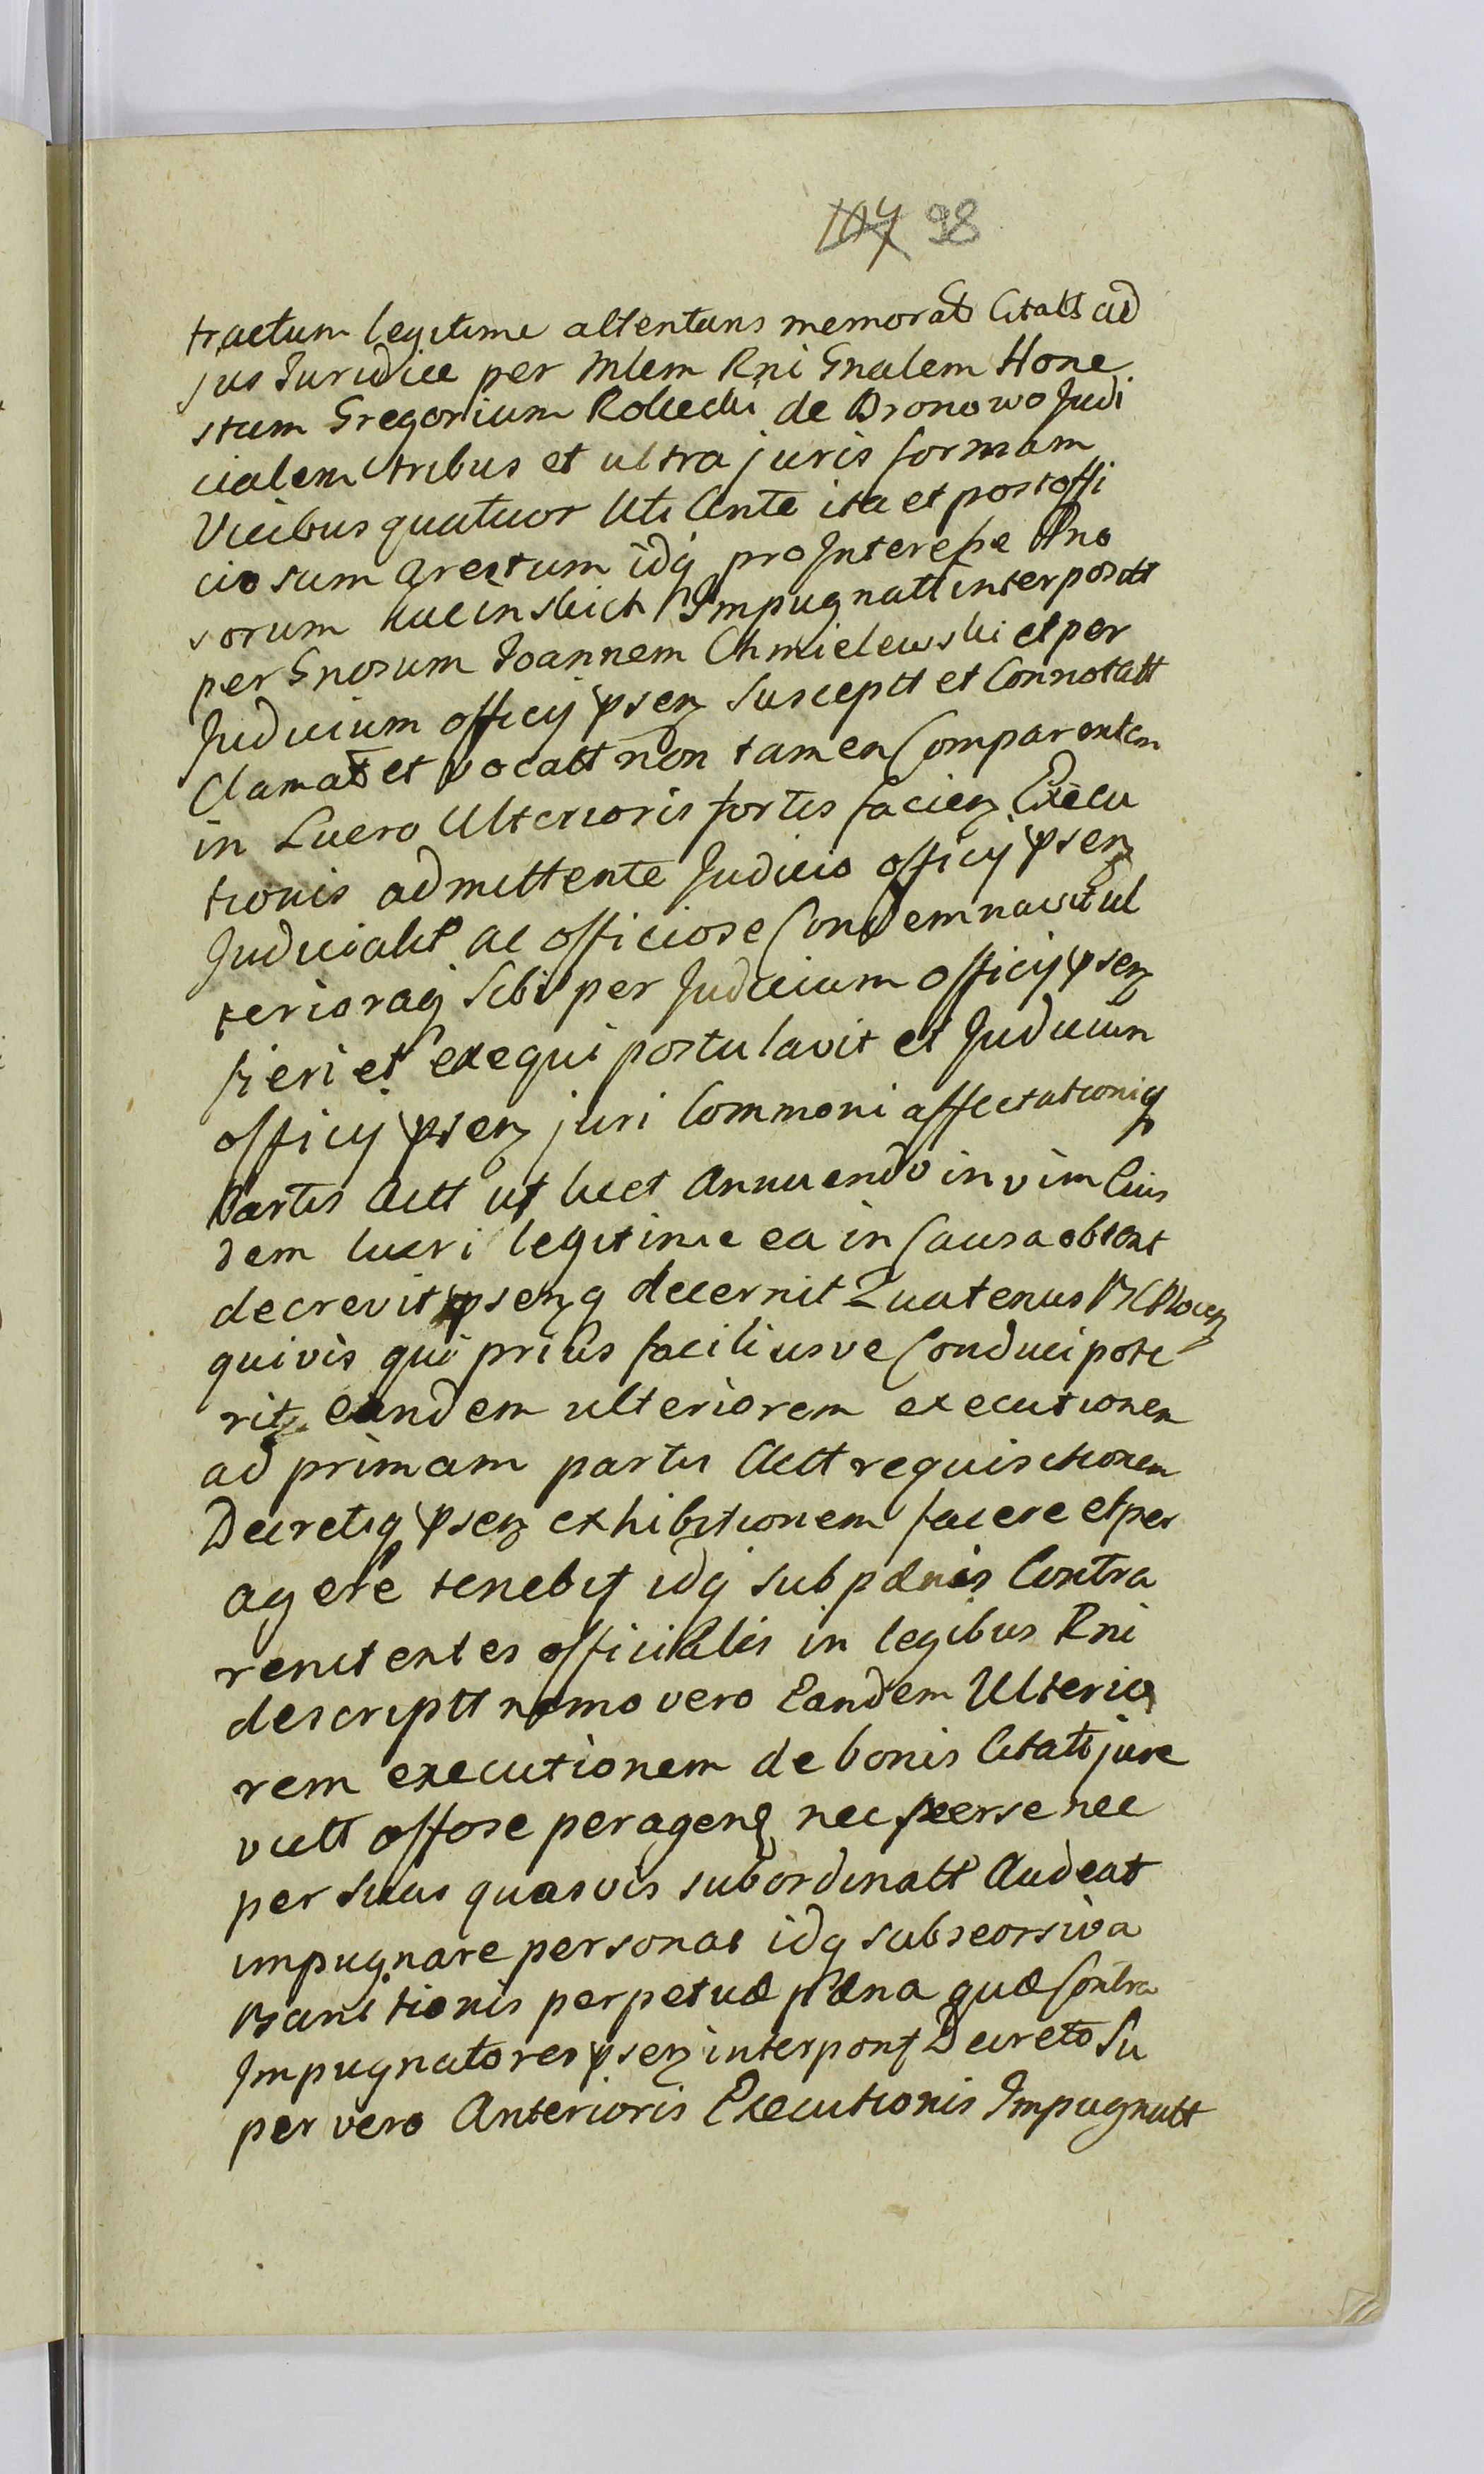 107 98
tractum legitime attentans memoratt Citatt ad
jus Juridice per Mlem Rni Gnalem Hone
stum Gregorium Rolecki de Bronowo Judi
cialem tribus et ultra juris formam
Vicibus quatuor Uti Ante ita et post offi
ciosum Arestum idq pro Interesse Gno
sorum Kucinskich Impugnatt interposm
per Gnosum Joannem Chmielewski et per
Judicium officij psenz susceptt et Connotatt
Clamatt et vocatt non tamen Comparentem
in Lucro Ulterioris fortis facienz Execu
tionis admittente Judicio officij psenz
Judicialit ac officiose Condemnavit ul
terioraq sibi per Judicium officij psenz
fieri et exequi postulavit et Judicium
officij psenz juri Communi affectationiq
Partis Actt ut licet Annuendo in vim Eius
dem lucri legitime ea in Causa obtent
decrevit psenzq decernit Quatenus
quivis qui prius faciliusve Conduci pote
rit eandem ulteriorem executionem
ad primam partis Actt requisitionem
Decretiq psenz exhibitionem facere et per
agere tenebit idq sub pænis Contra
renitentes officiales in legibus Rni
descriptt nemo vero Eandem Ulterio
rem executionem de bonis Citatt jure
victt offose peragenz nec per se nec
per suas quasvis subordinatt Audeat
impugnare personas idq sub seorsiva
Banitionis perpetuæ pæna quæ Contra
Impugnatores psenz interpont Decreto Su
per vero Anterioris Executionis Impugnatt